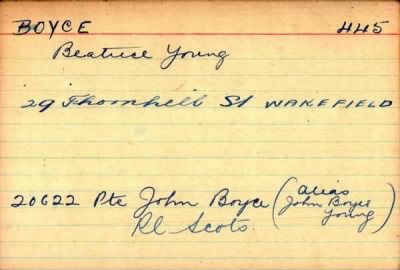 BOYCE 445
Beatrice Young
29 Thornhill St WAKEFIELD
20622 Pte John Boyce (alias John Boyce Young)
Rl Scots